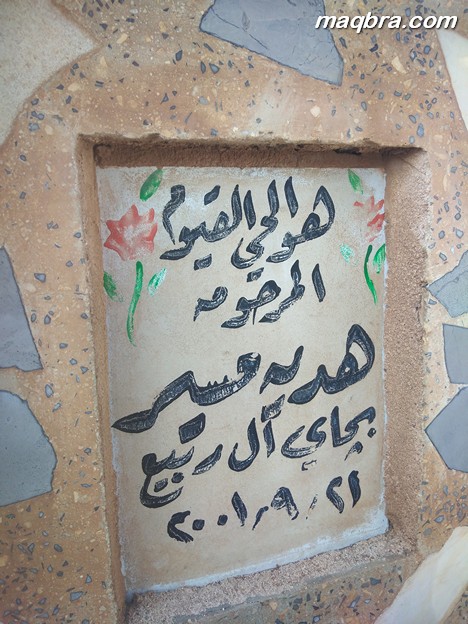 maqbra.com
هو الحي القيوم
المرحومه
هديه مسير
بجاي آل ربيع
٢٠٠١/٩/٢١